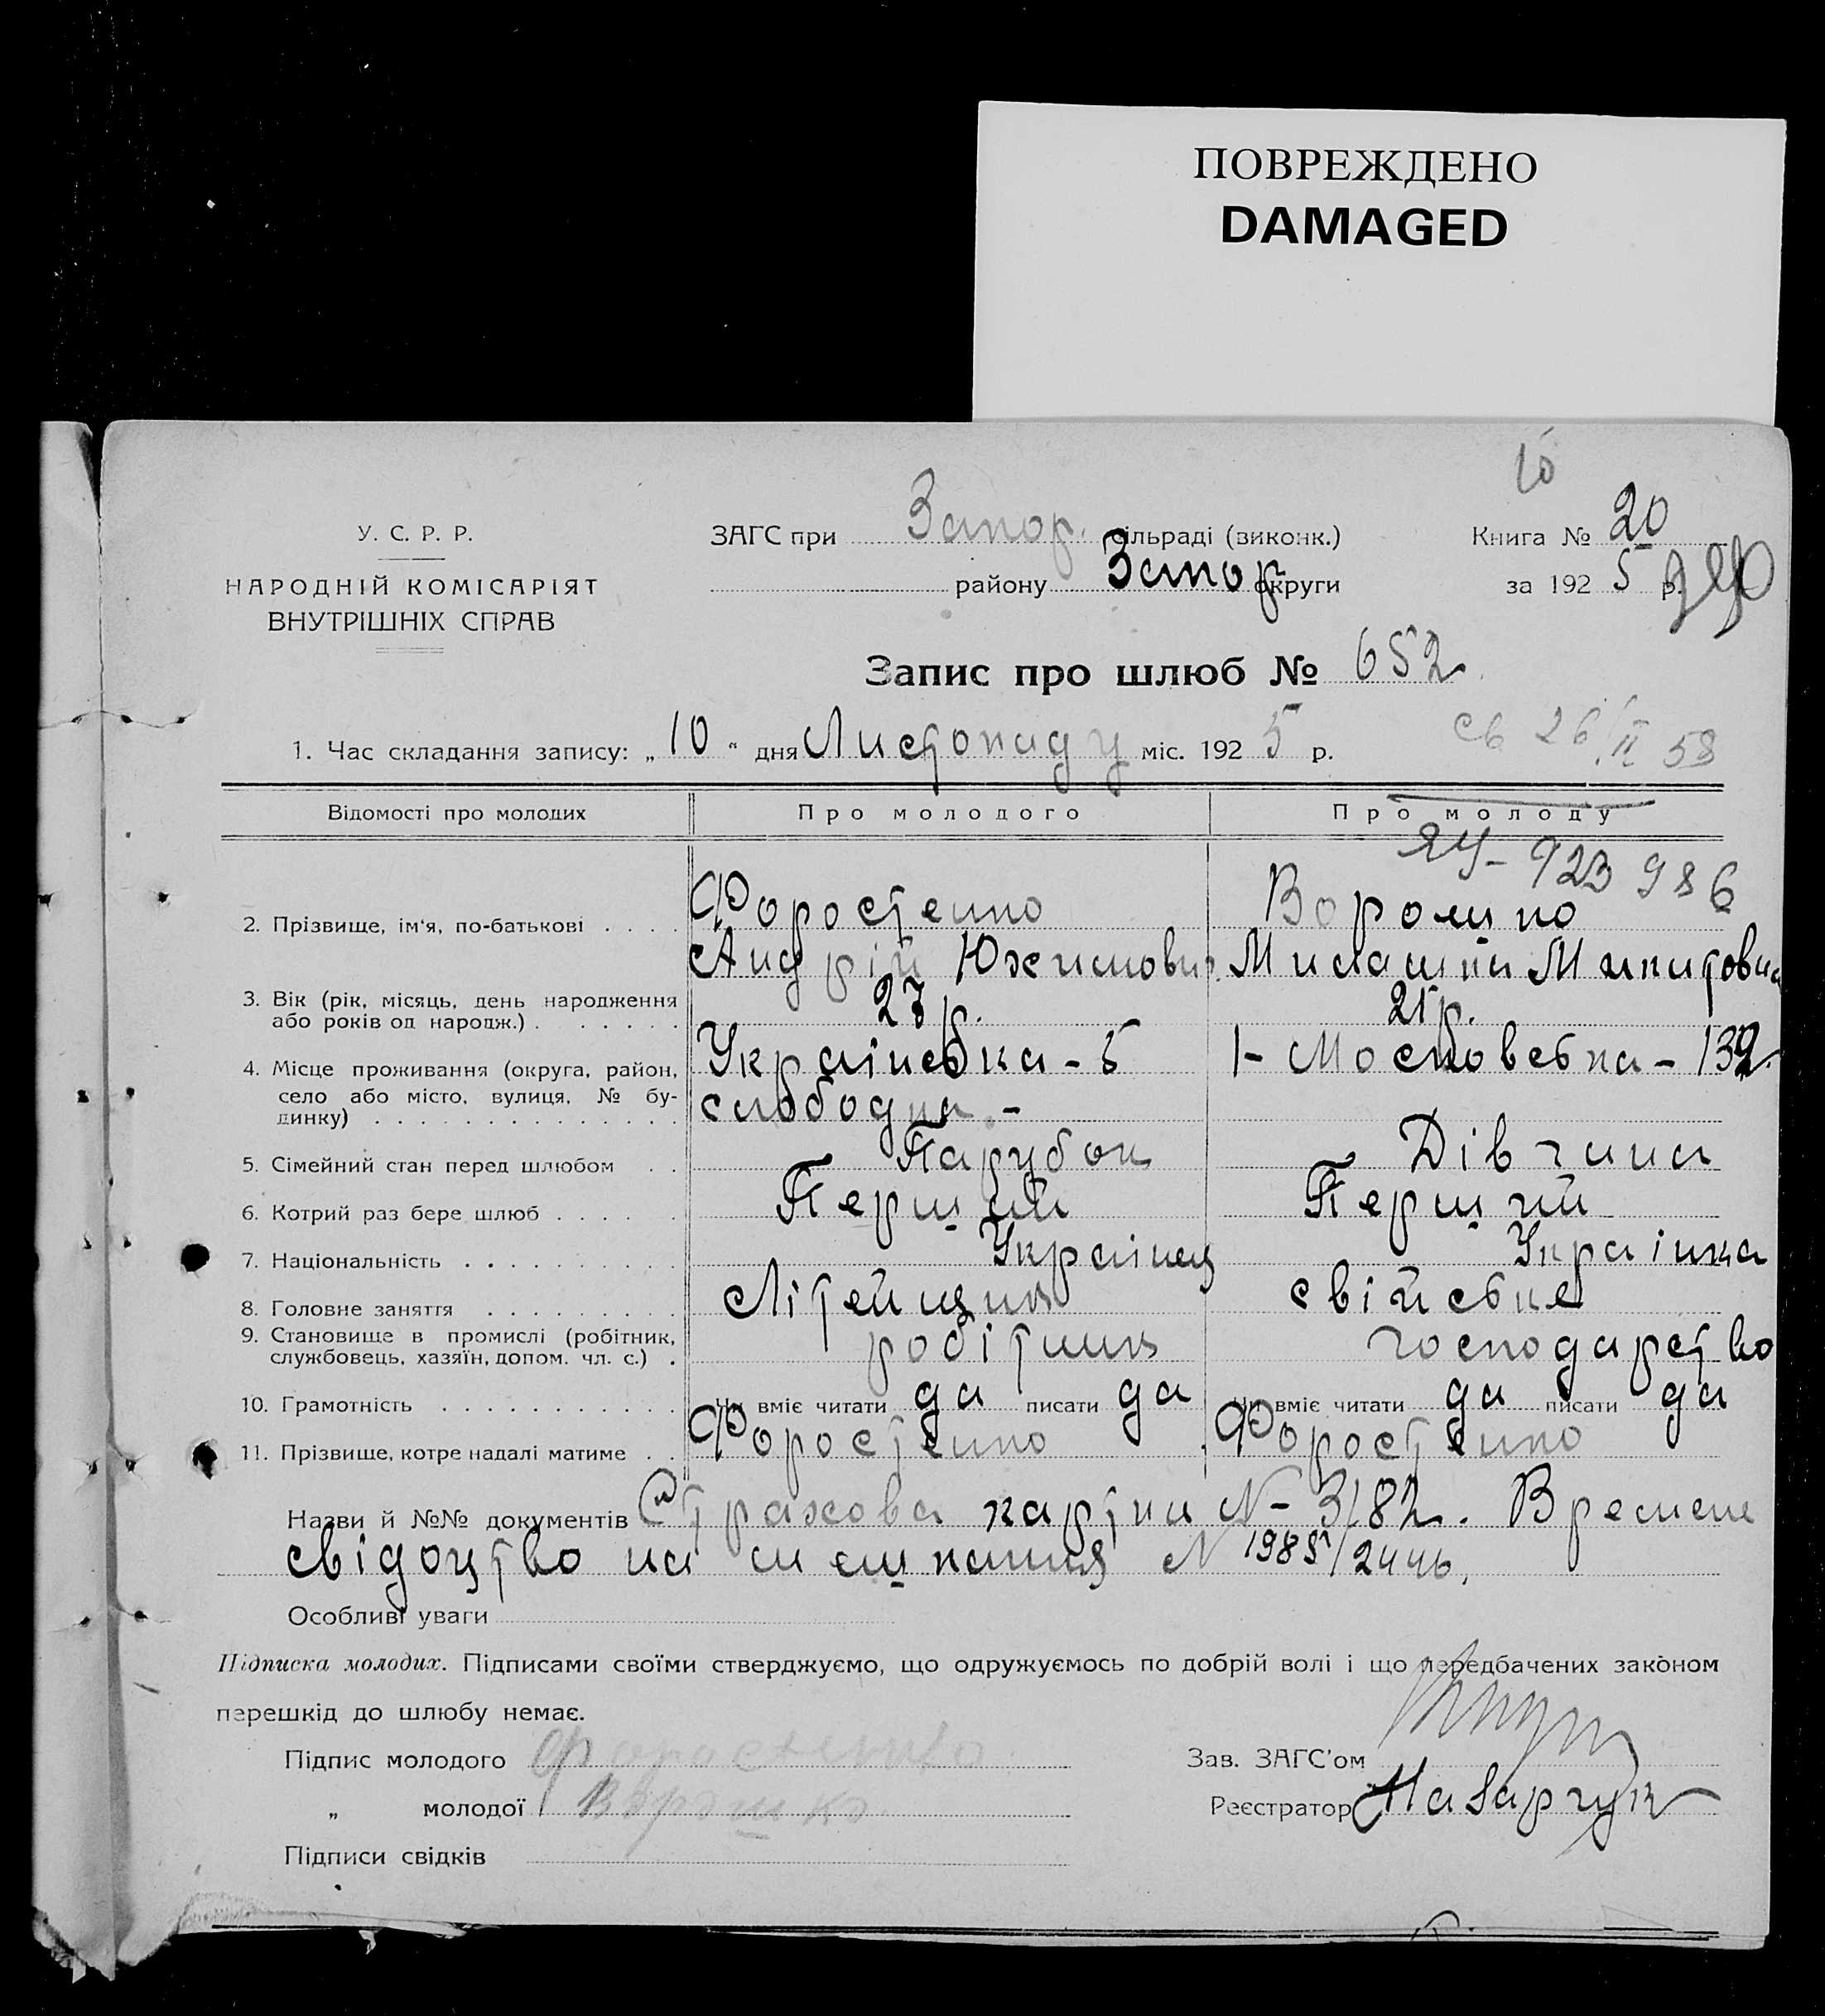 ПОВРЕЖДЕНО
DAMAGED
10
У. С. Р. Р.
НАРОДНІЙ КОМІСАРІЯТ
ВНУТРІШНІХ СПРАВ
ЗАГС при Запор. сільраді (виконк.)
району Запор округи
Книга № 20
за 1925 р.
Запис про шлюб № 652
1. Час складання запису: „10“ дня Листопаду міс. 1925 р.
св 26/II 58
Відомості про молодих
Про молодого
Про молоду
ЯЧ - 923986
2. Прізвище, ім'я, по-батькові
Форостенко
Андрій Юхимович
Ворошко
Микитовна
3. Вік (рік, місяць, день народження
або років од народж.)
27 р.
21 р.
4. Місце проживання (округа, район,
село або місто, вулиця, № бу-
динку)
Українська - 5
слободка -
1 - Московська - 132
5. Сімейний стан перед шлюбом
Парубок
Дівчина
6. Котрий раз бере шлюб
Перший
Перший
7. Національність
Українец
Українка
8. Головне заняття
Літейщик
свійське
9. Становище в промислі (робітник,
службовець, хазяїн, допом. чл. с.)
робітник
господарство
10. Грамотність
Чи вміє читати да писати да
Чи вміє читати да писати да
11. Прізвище, котре надалі матиме
Форостенко
Форостенко
Назви й №№ документів Страхова картка № 3182. Времене
свідоцтво на мешкання № 1985/2446.
Особливі уваги
Підписка молодих. Підписами своїми стверджуємо, що одружуємось по добрій волі і що передбачених законом
перешкід до шлюбу немає.
Підпис молодого Форостенко
„ молодої Ворошко
Підписи свідків
Зав. ЗАГС'ом
Реєстратор Назарчук